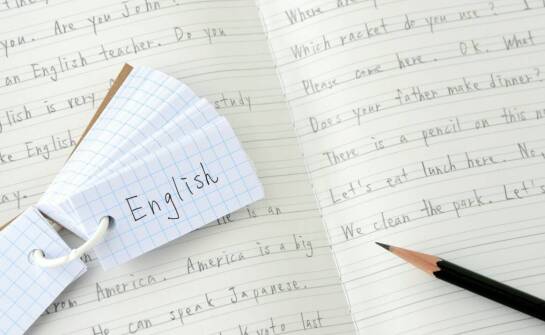 you. Are you John?
an English teacher. Do you
English is very
study
like English
He is an
from America. America is a big
He can speak Japanese.
Kyoto last
English
Where are
Which racket do you use? I
Please come here. Ok. What
Does your father make dinner?
There is a pencil on this
Let's eat lunch here. No,
We clean the park. Let's